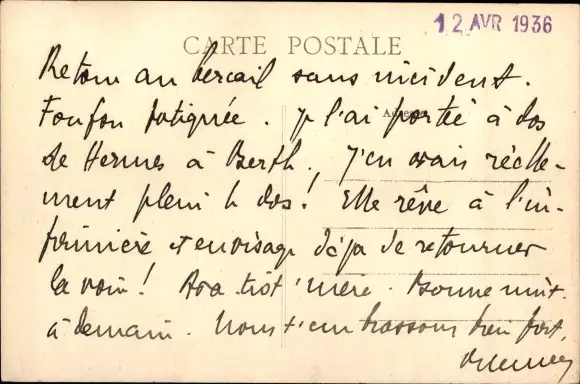 12 AVR 1936
CARTE POSTALE
Retour au bercail sans incident.
Fonfon fatiguée. Je l'ai portée à dos
de Hermes à Berth., j'en avais réelle-
ment plein le dos! Elle rêve à l'in-
firmière et envisage déjà de retourner
la voir! Bonne nuit.
à demain. Nous t'embrassons bien fort,